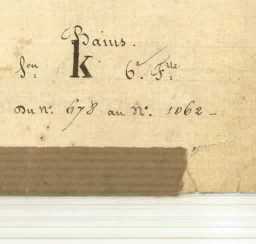 Hains.
Son K 6e. Flle.
Du No. 678 au No. 1062 -